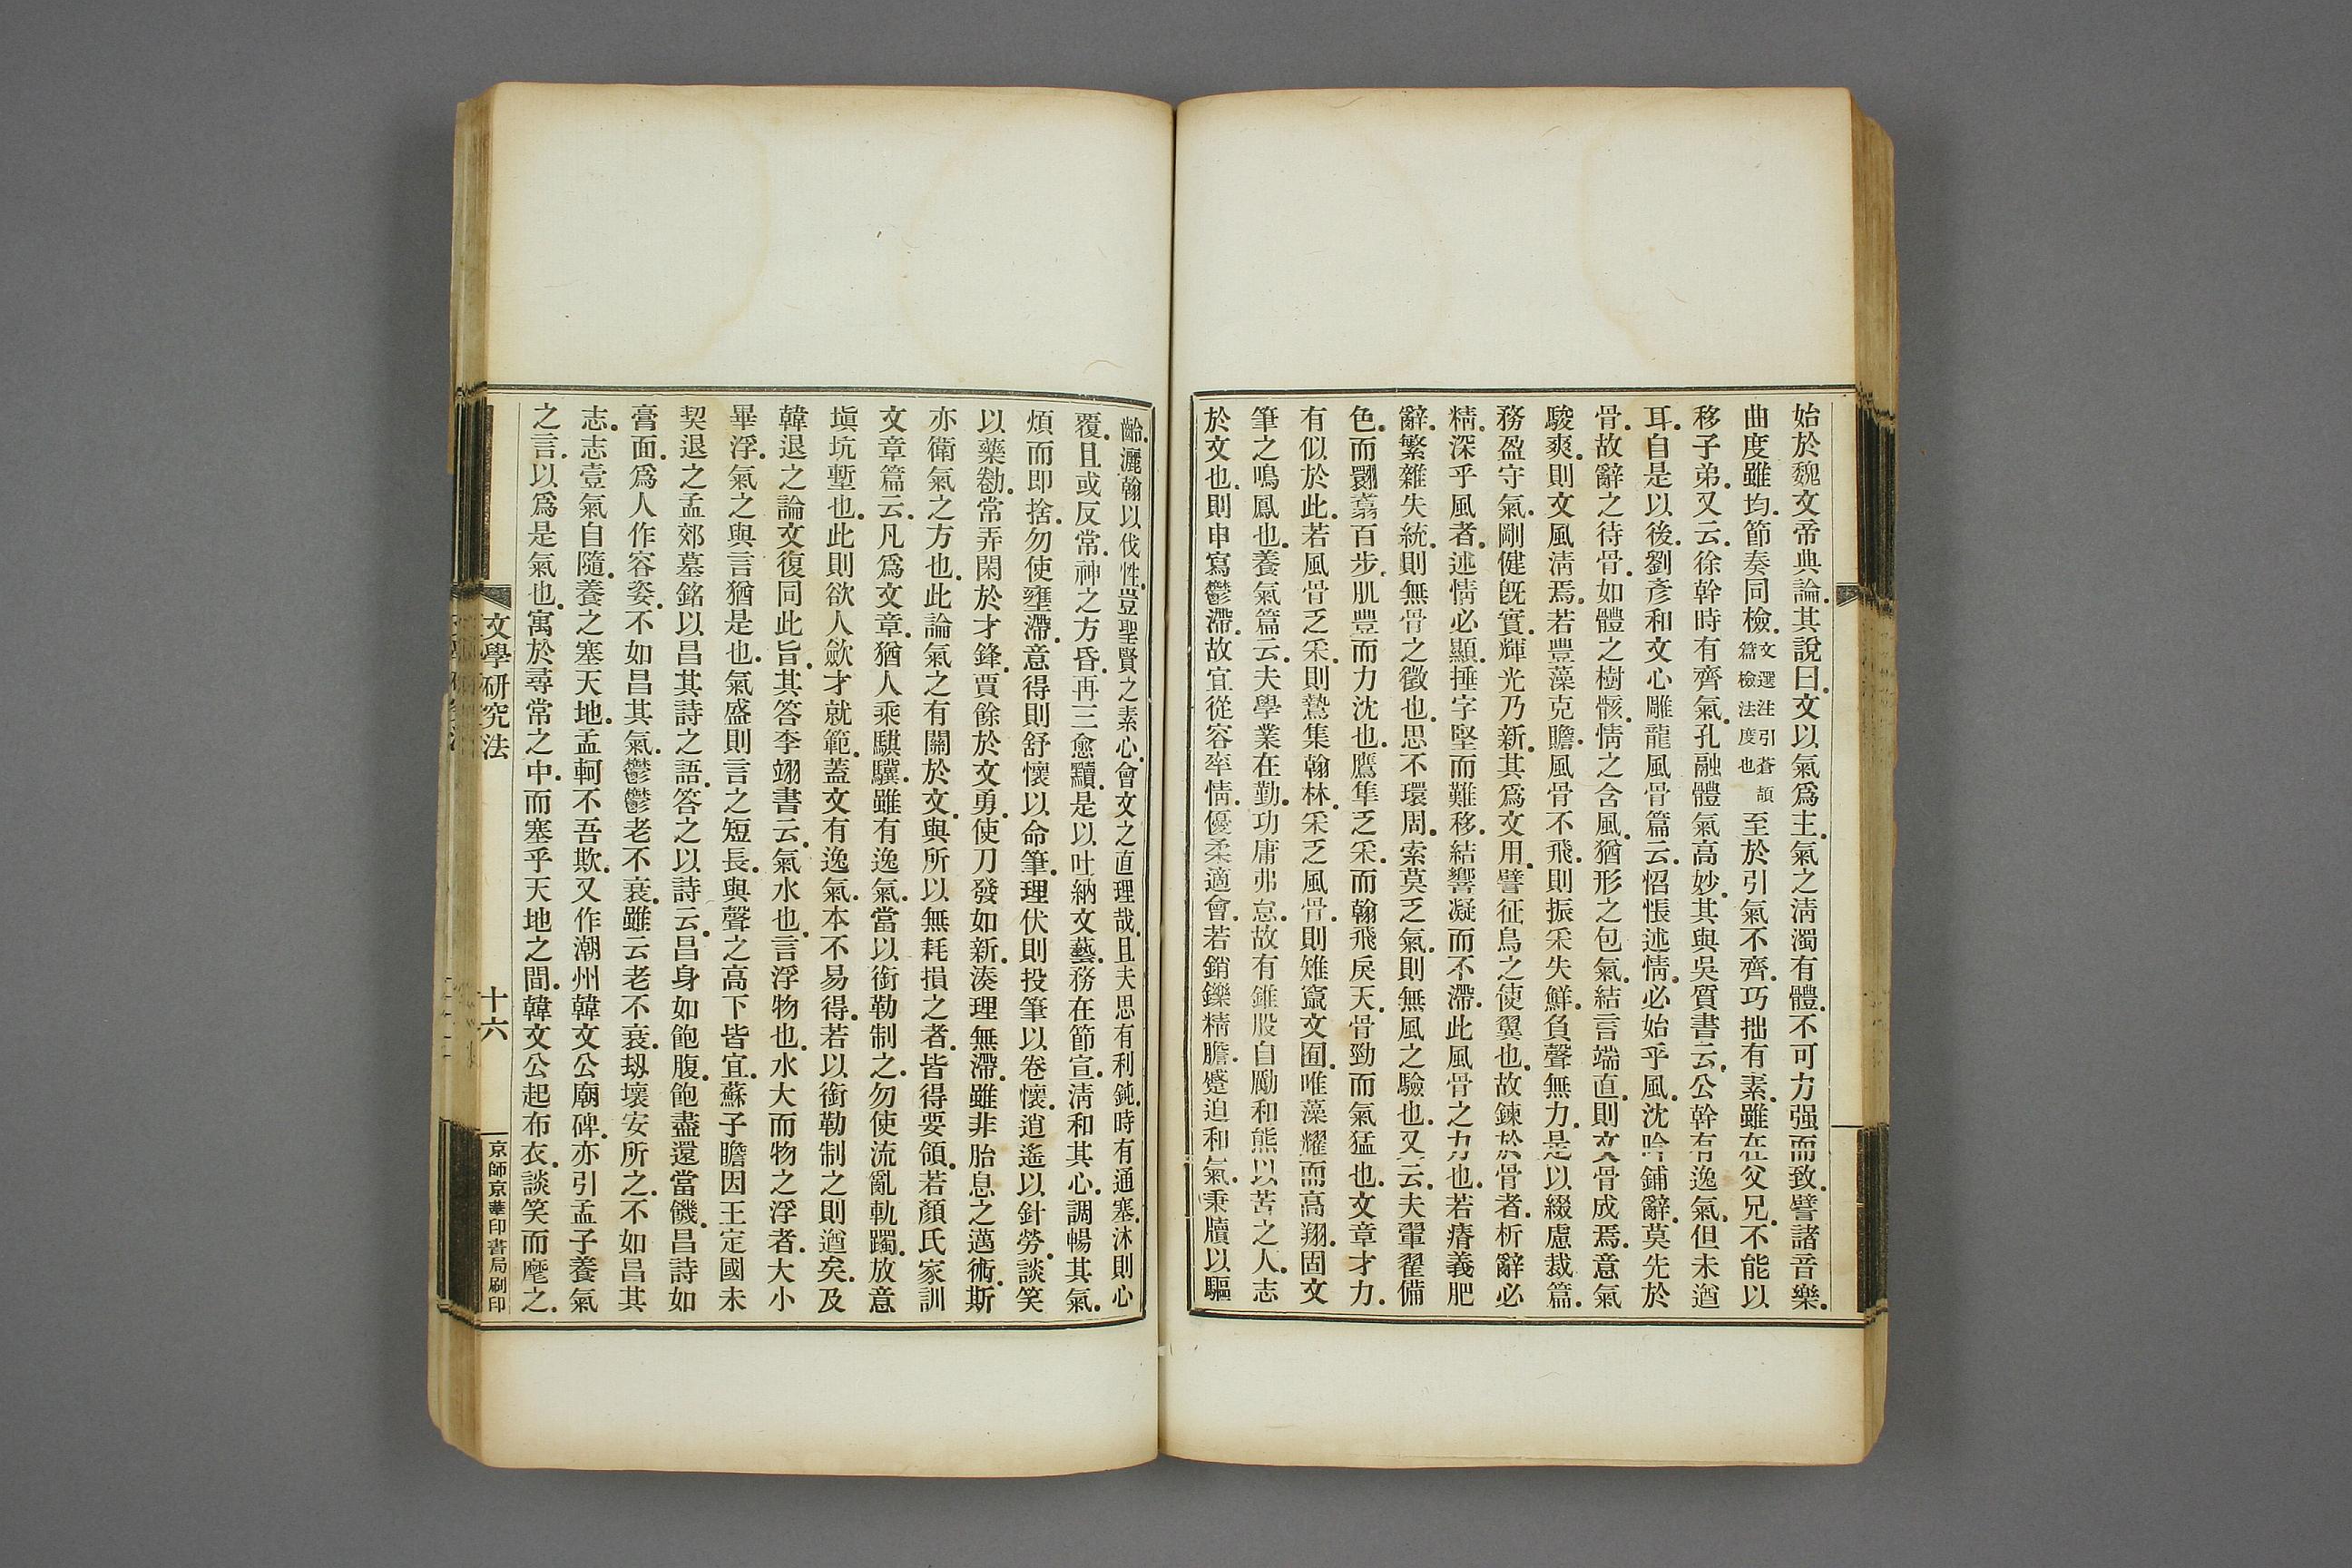 始於魏文帝典論.其說曰.文以氣爲主.氣之淸濁有體.不可力强而致.譬諸音樂.
曲度雖均.節奏同檢.文選注引蒼頡篇檢法度也至於引氣不齊.巧拙有素.雖在父兄.不能以
移子弟.又云.徐幹時有齊氣.孔融體氣高妙.其與吳質書云.公幹有逸氣.但未遒
耳.自是以後.劉彥和文心雕龍風骨篇云.怊悵述情.必始乎風.沈吟鋪辭.莫先於
骨.故辭之待骨.如體之樹骸.情之含風.猶形之包氣.結言端直.則文骨成焉.意氣
駿爽.則文風淸焉.若豐藻克贍.風骨不飛.則振采失鮮.負聲無力.是以綴慮裁篇.
務盈守氣.剛健旣實.輝光乃新.其爲文用.譬征鳥之使翼也.故鍊於骨者.析辭必
精.深乎風者.述情必顯.捶字堅而難移.結響凝而不滯.此風骨之力也.若瘠義肥
辭.繁雜失統.則無骨之徵也.思不環周.索莫乏氣.則無風之驗也.又云.夫翬翟備
色.而翾翥百步.肌豐而力沈也.鷹隼乏采.而翰飛戾天.骨勁而氣猛也.文章才力.
有似於此.若風骨乏采.則鷙集翰林.采乏風骨.則雉竄文囿.唯藻耀而高翔.固文
筆之鳴鳳也.養氣篇云.夫學業在勤.功庸弗怠.故有錐股自勵.和熊以苦之人.志
於文也.則申寫鬱滯.故宜從容率情.優柔適會.若銷鑠精膽.蹙迫和氣.秉牘以驅
齡.灑翰以伐性.豈聖賢之素心.會文之直理哉.且夫思有利鈍.時有通塞.沐則心
覆.且或反常.神之方昏.再三愈黷.是以吐納文藝.務在節宣.淸和其心.調暢其氣.
煩而卽捨.勿使壅滯.意得則舒懷以命筆.理伏則投筆以卷懷.逍遙以針勞.談笑
以藥勌.常弄閑於才鋒.賈餘於文勇.使刀發如新.湊理無滯.雖非胎息之邁術.斯
亦衛氣之方也.此論氣之有關於文.與所以無耗損之者.皆得要領.若顏氏家訓
文章篇云.凡爲文章.猶人乘騏驥.雖有逸氣.當以銜勒制之.勿使流亂軌躅.放意
塡坑塹也.此則欲人歛才就範.蓋文有逸氣.本不易得.若以銜勒制之則遒矣.及
韓退之論文.復同此旨.其答李翊書云.氣水也.言浮物也.水大而物之浮者.大小
畢浮.氣之與言猶是也.氣盛則言之短長.與聲之高下皆宜.蘇子瞻因王定國未
契退之孟郊墓銘以昌其詩之語.答之以詩云.昌身如飽腹.飽盡還當饑.昌詩如
膏面.爲人作容姿.不如昌其氣.鬱鬱老不衰.雖云老不衰.刼壞安所之.不如昌其
志.志壹氣自隨.養之塞天地.孟軻不吾欺.又作潮州韓文公廟碑.亦引孟子養氣
之言.以爲是氣也.寓於尋常之中.而塞乎天地之間.韓文公起布衣.談笑而麾之.
文學研究法
十六
京師京華印書局刷印